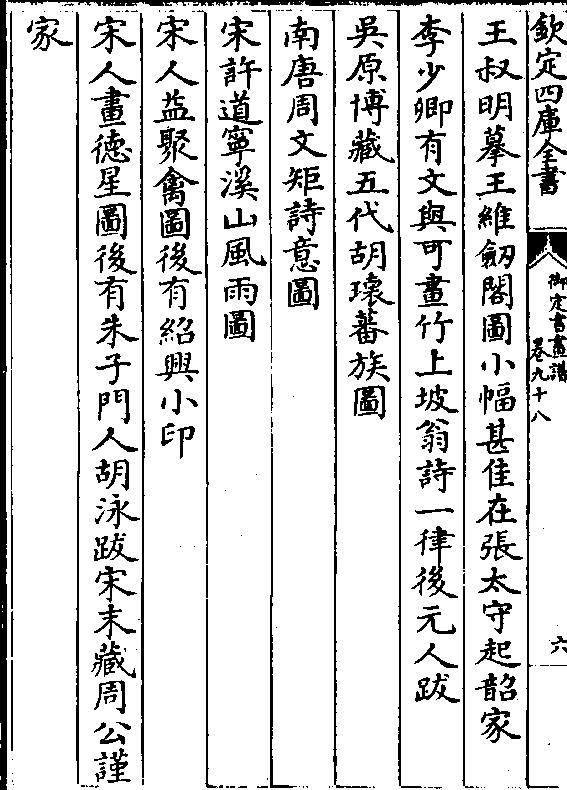 欽定四庫全書
御定書畫譜
卷九十八
六
王叔明摹王維劒閣圖小幅甚佳在張太守起韶家
李少卿有文與可畫竹上坡翁詩一律後元人跋
吳原博藏五代胡瓌蕃族圖
南唐周文矩詩意圖
宋許道寧溪山風雨圖
宋人益聚禽圖後有紹興小印
宋人畫德星圖後有朱子門人胡泳跋宋末藏周公謹
家